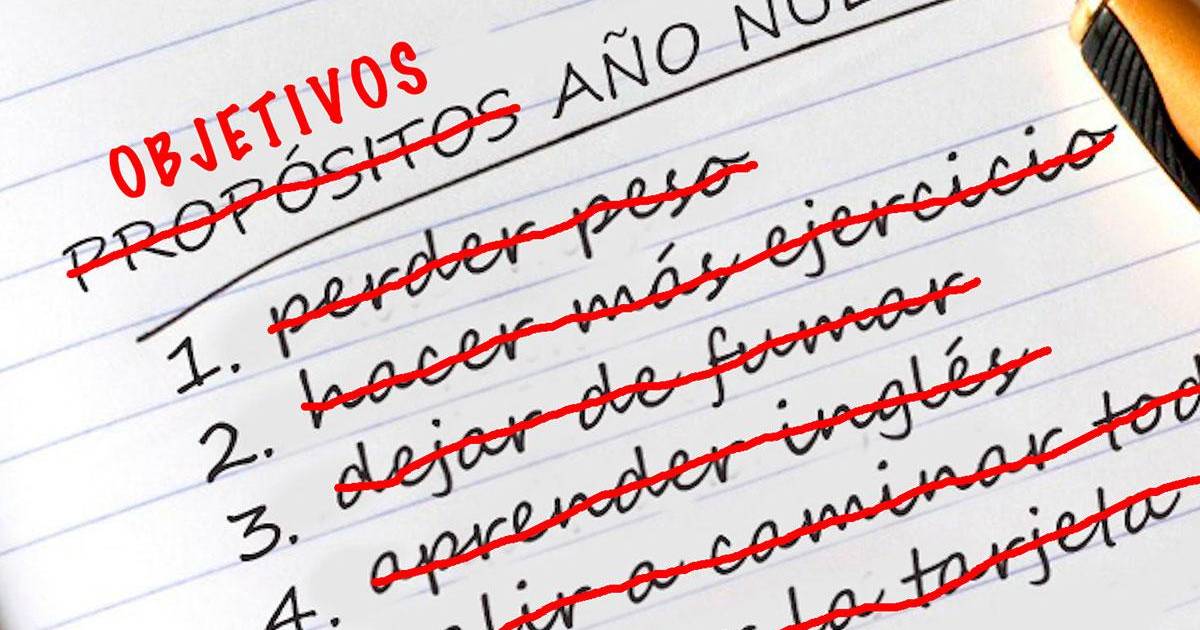 OBJETIVOS
PROPÓSITOS AÑO
1. perder peso
2. hacer más ejercicio
3. dejar de fumar
4. aprender inglés
a caminar
la tarjeta